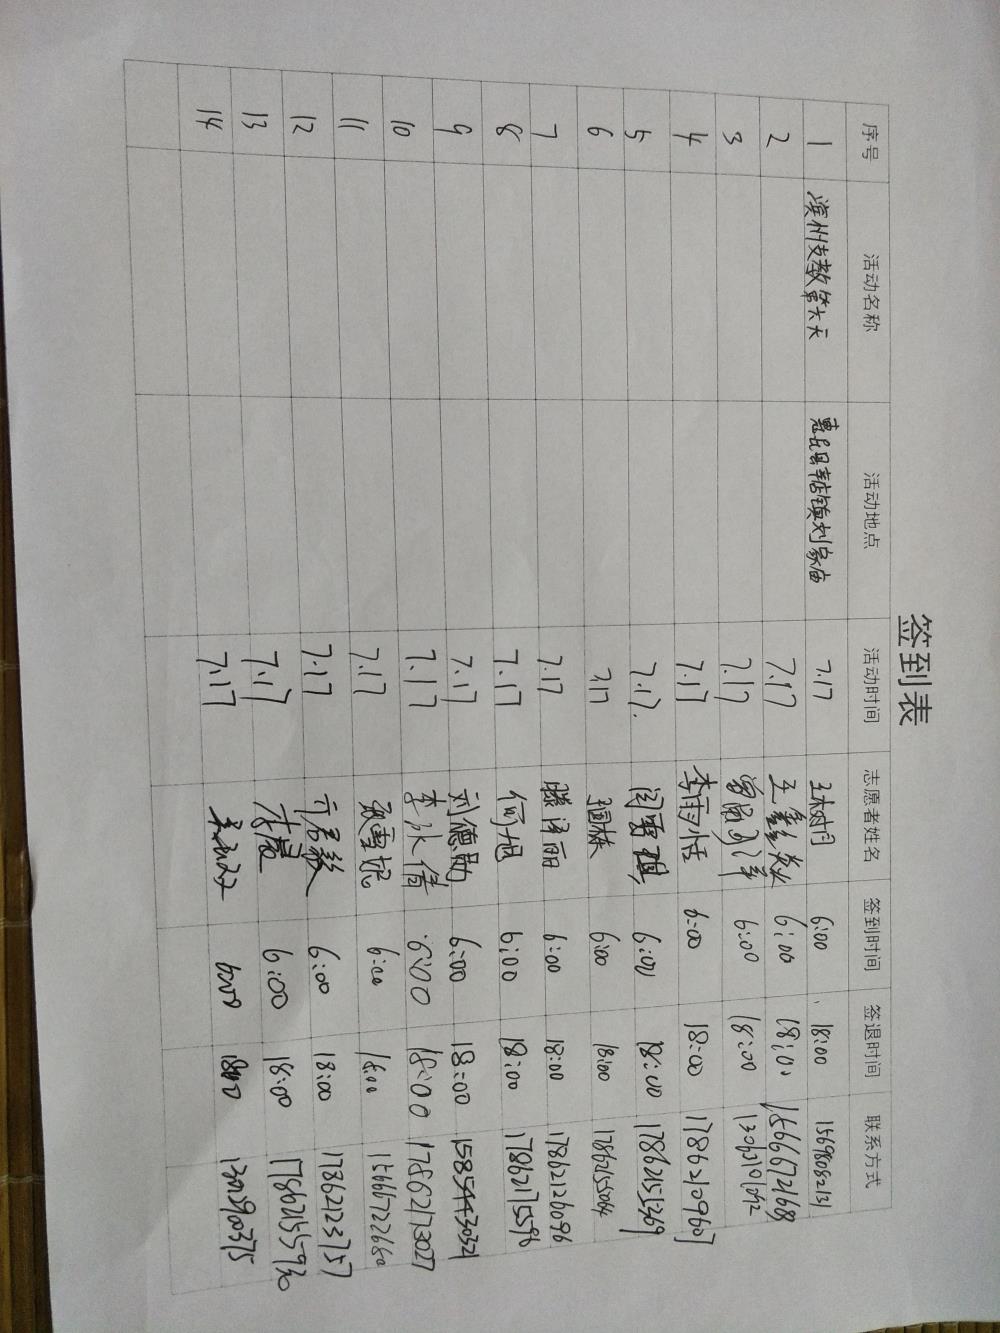 签到表
序号 活动名称 活动地点 活动时间 志愿者姓名 签到时间 签退时间 联系方式
1 滨州支教第六天 惠民县辛店镇刘家庙 7.17 6:00 18:00 15698082131
2 7.17 王鑫淼 6:00 18:00 15666721688
3 7.17 6:00 18:00
4 7.17 李雨恬 6:00 18:00 17862109607
5 7.17. 闫雪琪 6:00 18:00 17862151369
6 7.17 6:00 18:00 17862155064
7 7.17 滕泽丽 6:00 18:00 17862126096
8 7.17 何旭 6:00 18:00 17862175596
9 7.17 刘德勋 6:00 18:00 15854430321
10 7.17 李冰倩 6:00 18:00 17862173027
11 7.17 6:00 18:00 15666722680
12 7.17 6:00 18:00 17862123757
13 7.17 李晨 6:00 18:00 17862155930
14 7.17 6:00 1800